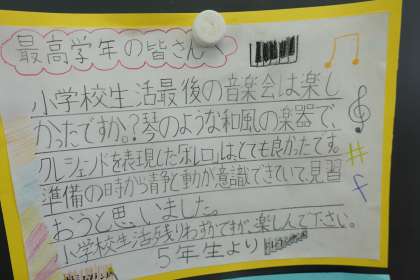 最高学年の皆さんへ
小学校生活最後の音楽会は楽し
かったですか。?琴のような和風の楽器で、
クレシェンドを表現した所は、とても良かったです。
準備の時から静と動が意識できていて、見習
おうと思いました。
小学校生活残りわずかですが、楽しんで下さい。
5年生より